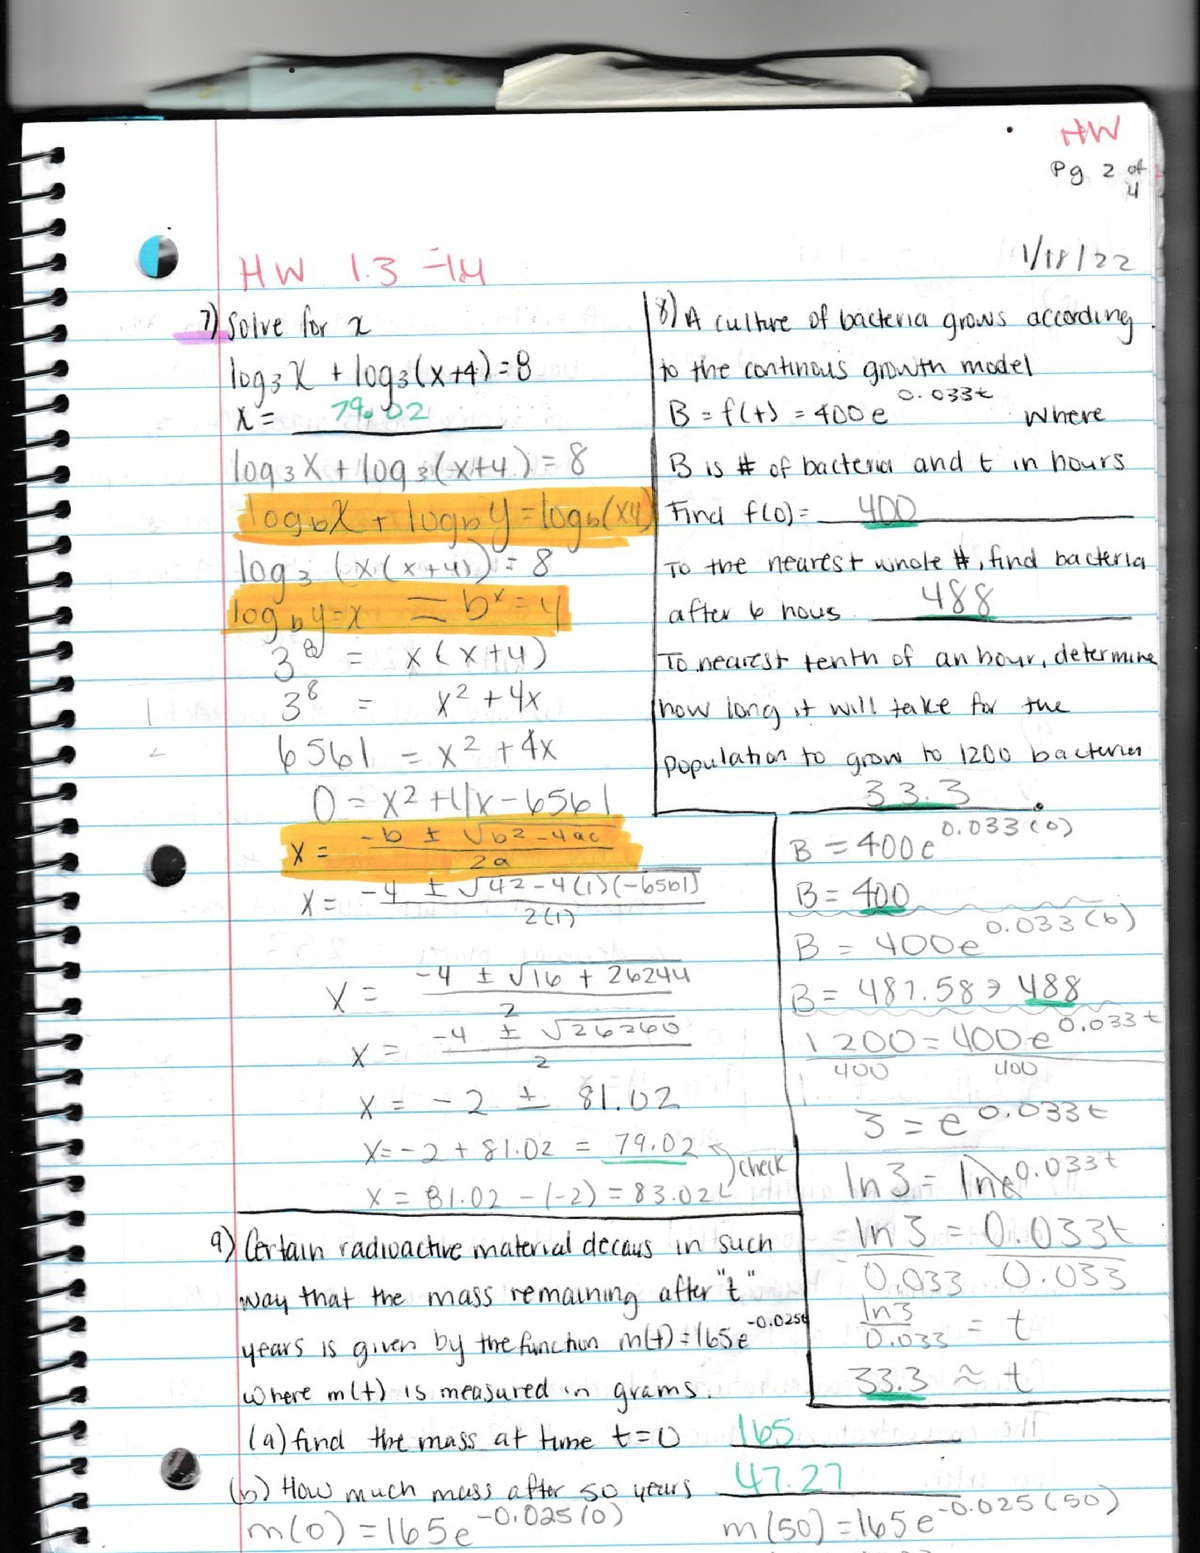 HW
Pg 2 of 4
1/18/22
HW 1.3 - 1.4
7) Solve for x
log₃X + log₃(x+4) = 8
x = 79.02
log₃X + log₃(x+4) = 8
log_bX + log_b y = log_b(xy)
log₃(x(x+4)) = 8
log_b y = x = b^x = y
3^8 = x(x+4)
3^8 = x² + 4x
6561 = x² + 4x
0 = x² + 4x - 6561
x = (-b ± √b²-4ac)/2a
x = (-4 ± √4²-4(1)(-6561))/2(1)
x = (-4 ± √16 + 26244)/2
x = (-4 ± √26260)/2
x = -2 ± 81.02
x = -2 + 81.02 = 79.02
check
x = 81.02 - (-2) = 83.02
8) A culture of bacteria grows according
to the continous growth model
B = f(t) = 400e^0.033t where
B is # of bacteria and t in hours
Find f(0) = 400
To the nearest whole #, find bacteria
after 6 hous 488
To nearest tenth of an hour, determine
how long it will take for the
population to grow to 1200 bacteria
33.3
B = 400e^0.033(0)
B = 400
B = 400e^0.033(6)
B = 487.58 → 488
1200/400 = 400e^0.033t/400
3 = e^0.033t
ln3 = lne^0.033t
ln3/0.033 = 0.033t/0.033
ln3/0.033 = t
33.3 ≈ t
9) Certain radioactive material decays in such
way that the mass remaining after "t"
years is given by the function m(t) = 165e^-0.025t
where m(t) is measured in grams.
(a) find the mass at time t=0 165
(b) How much mass after 50 years 47.27
m(0) = 165e^-0.025(0)
m(50) = 165e^-0.025(50)